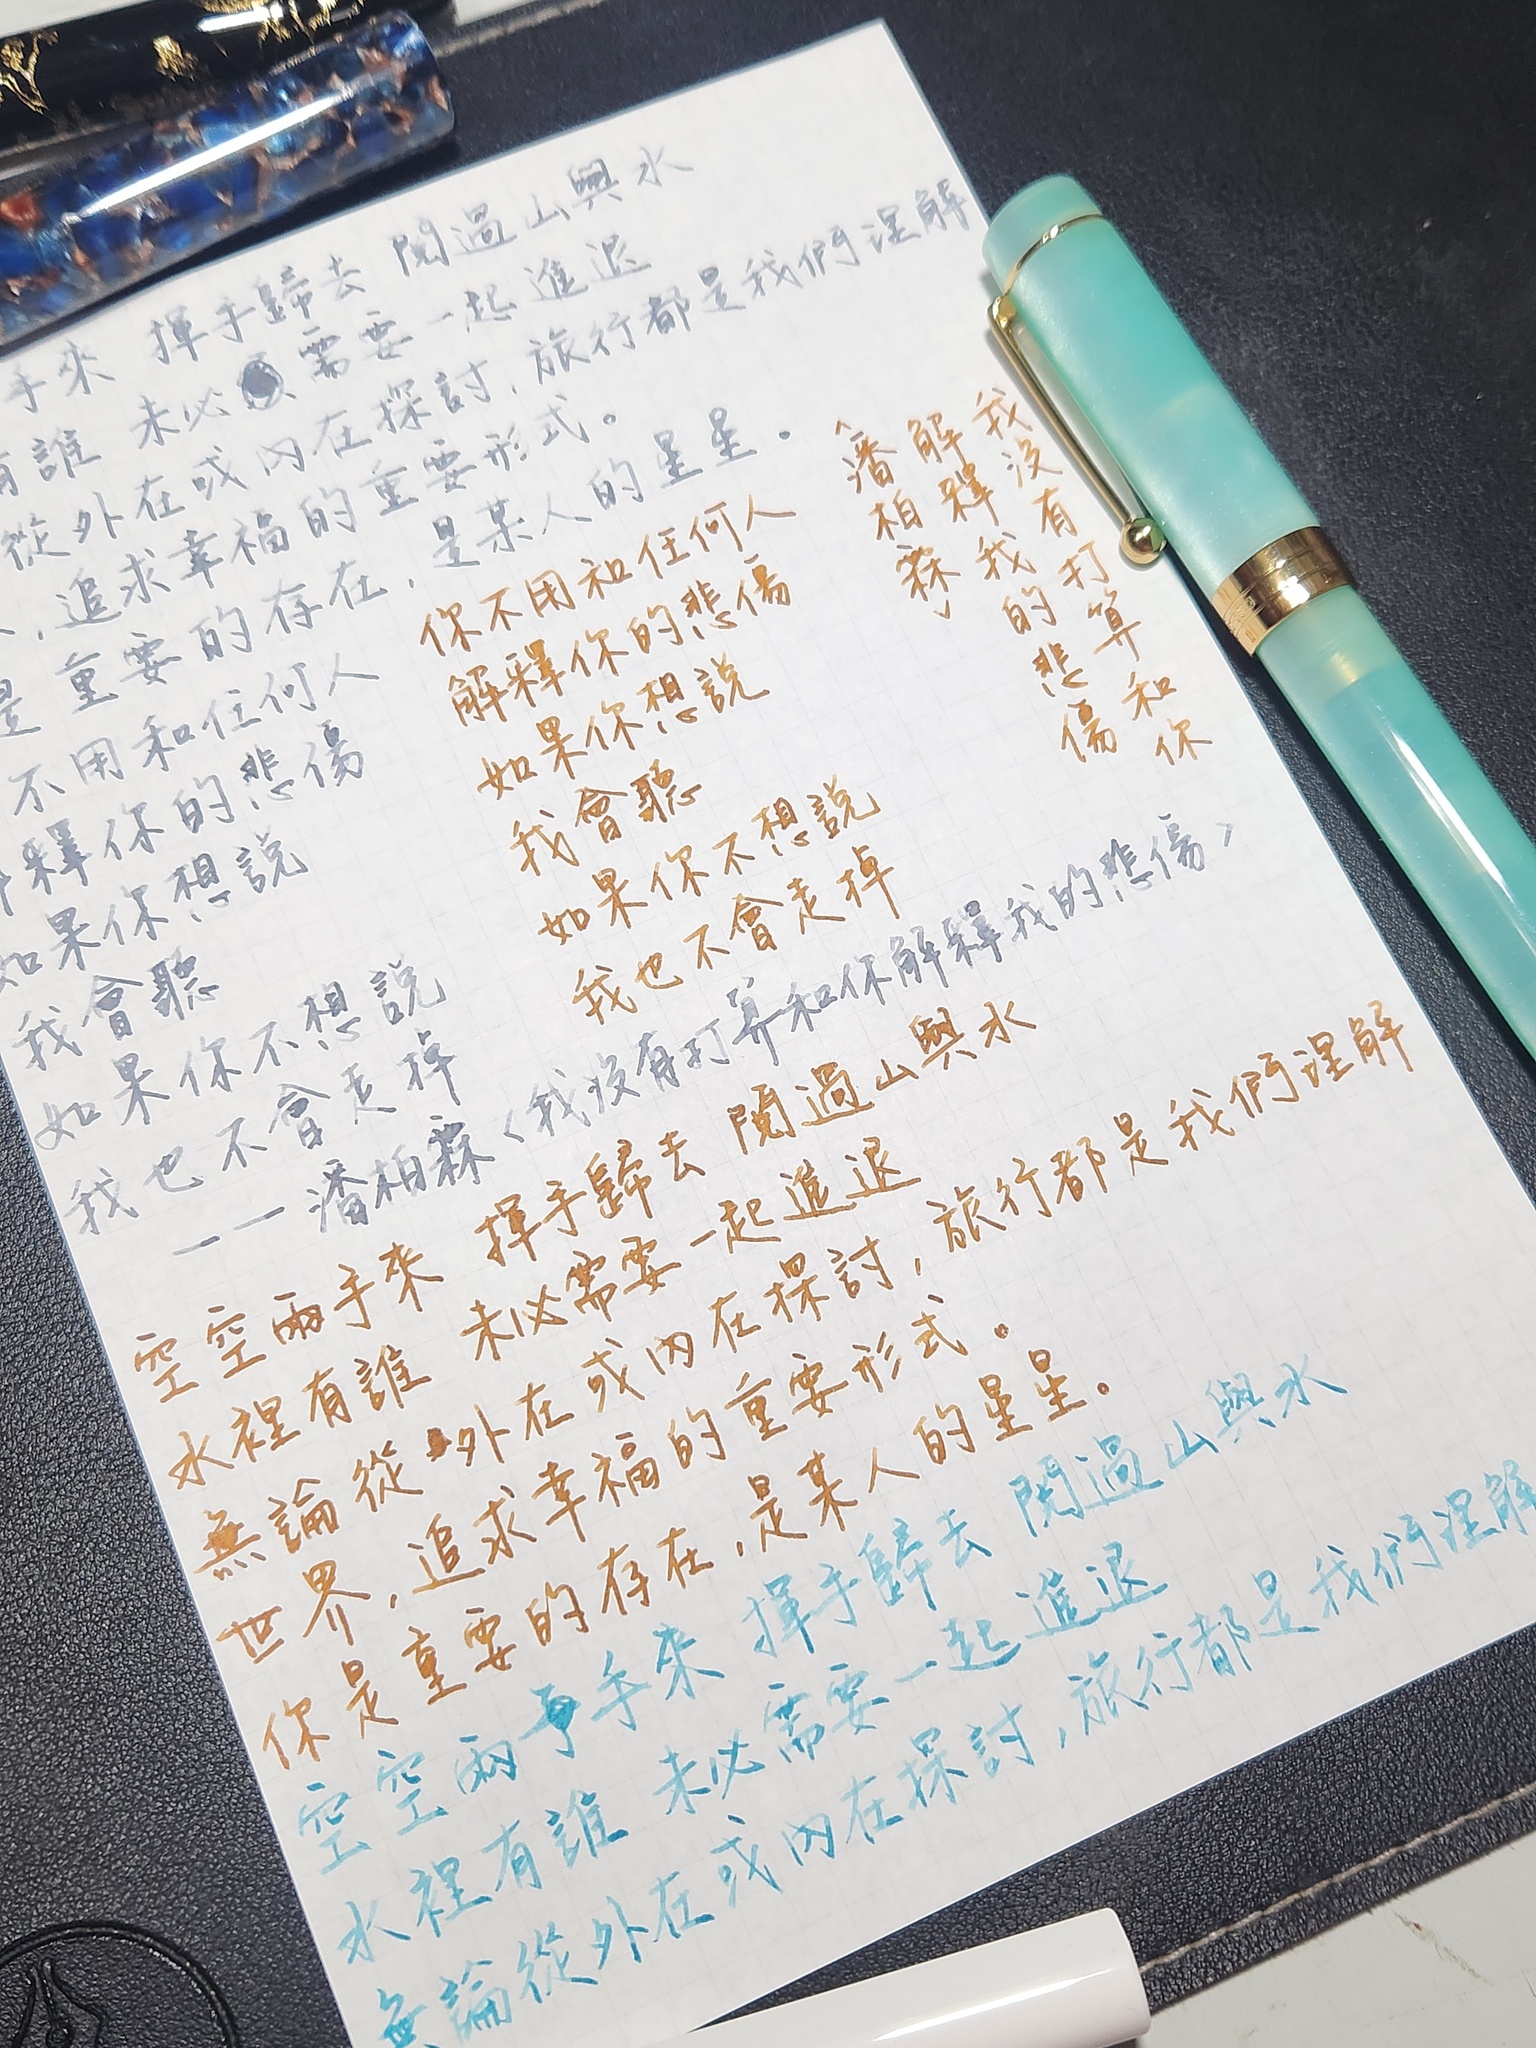 手來 揮手歸去 閱過山與水
有誰 未必 需要一起進退
從外在或內在探討,旅行都是我們理解
,追求幸福的重要形式。
是重要的存在,是某人的星星。
不用和任何人
解釋你的悲傷
如果你想說
我會聽
如果你不想說
我也不會走掉
——潘柏霖〈我沒有打算和你解釋我的悲傷〉
你不用和任何人
解釋你的悲傷
如果你想說
我會聽
如果你不想說
我也不會走掉
我沒有打算和你
解釋我的悲傷
〈潘柏霖〉
空空兩手來 揮手歸去 閱過山與水
水裡有誰 未必需要一起進退
無論從外在或內在探討,旅行都是我們理解
世界,追求幸福的重要形式。
你是重要的存在,是某人的星星。
空空兩手來 揮手歸去 閱過山與水
水裡有誰 未必需要一起進退
無論從外在或內在探討,旅行都是我們理解